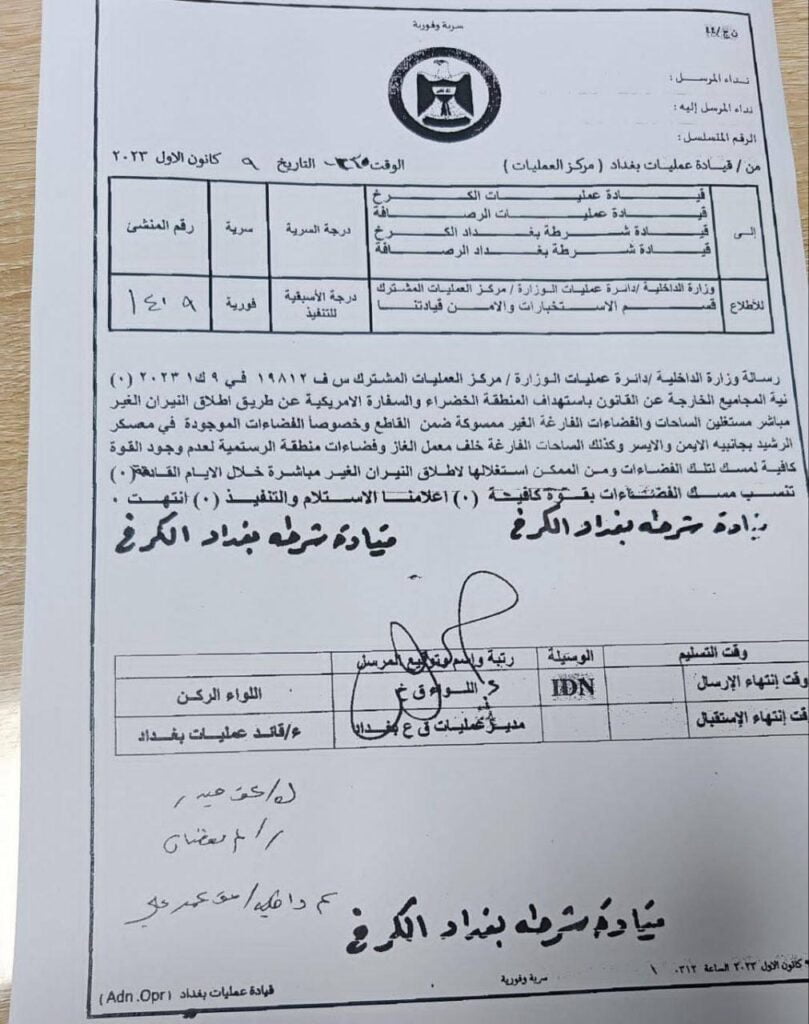 سرية وفورية
نداء المرسل :
نداء المرسل إليه :
الرقم المتسلسل :
من / قيادة عمليات بغداد ( مركز العمليات ) الوقت التاريخ ٩ كانون الاول ٢٠٢٣
إلى
قيادة عمليات الكرخ
قيادة عمليات الرصافة
قيادة شرطة بغداد الكرخ
قيادة شرطة بغداد الرصافة
درجة السرية
سرية
رقم المنشئ
للأطلاع
وزارة الداخلية /دائرة عمليات الوزارة / مركز العمليات المشترك
قسم الاستخبارات والامن قيادتنا
درجة الأسبقية للتنفيذ
فورية
١٤١٩
رسالة وزارة الداخلية /دائرة عمليات الوزارة / مركز العمليات المشترك س ف ١٩٨١٢ في ٩ ك١ ٢٠٢٣ (٠)
نية المجاميع الخارجة عن القانون باستهداف المنطقة الخضراء والسفارة الامريكية عن طريق اطلاق النيران الغير
مباشر مستغلين الساحات والفضاءات الفارغة الغير ممسوكة ضمن القاطع وخصوصاً الفضاءات الموجودة في معسكر
الرشيد بجانبيه الايمن والايسر وكذلك الساحات الفارغة خلف معمل الغاز وفضاءات منطقة الرستمية لعدم وجود القوة
كافية لمسك لتلك الفضاءات ومن الممكن استغلالها لاطلاق النيران الغير مباشرة خلال الايام القادمة (٠)
تنسب مسك الفضاءات بقوة كافية (٠) اعلامنا الاستلام والتنفيذ (٠) انتهت ٠
قيادة شرطه بغداد الكرخ قيادة شرطه بغداد الكرخ
وقت التسليم
الوسيلة
رتبة واسم وتوقيع المرسل
وقت إنتهاء الإرسال
IDN
اللواء ق خ
اللواء الركن
وقت إنتهاء الإستقبال
مدير عمليات ق ع بغداد
ع/قائد عمليات بغداد
قيادة شرطه بغداد الكرخ
كانون الاول ٢٠٢٣ الساعة ٠٣١٢
سرية وفورية
قيادة عمليات بغداد (Adn .Opr)